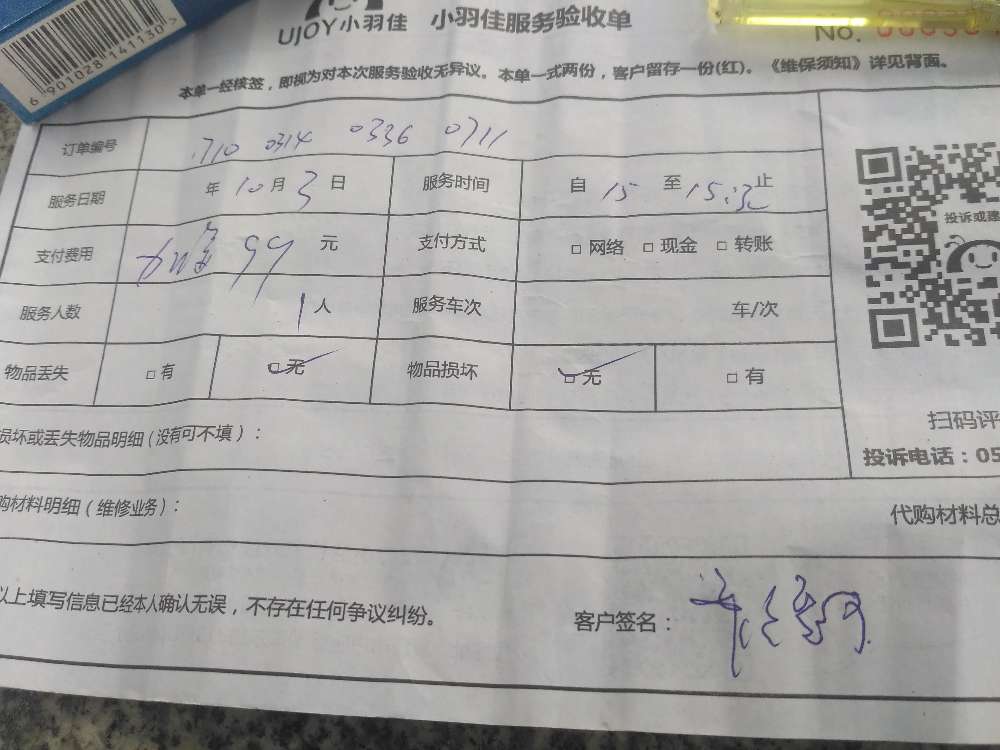 6 901028 141130
UJOY小羽佳 小羽佳服务验收单
No.
本单一经核签，即视为对本次服务验收无异议。本单一式两份，客户留存一份(红)。《维保须知》详见背面。
订单编号 1710 0314 0336 0711
服务日期 年 10 月 3 日 服务时间 自 15 至 15: 止
支付费用 99 元 支付方式 □ 网络 □ 现金 □ 转账
投诉或建
服务人数 1 人 服务车次 车/次
物品丢失 □ 有 □ 无 物品损坏 □ 无 □ 有
扫码评
损坏或丢失物品明细（没有可不填）：
投诉电话：05
购材料明细（维修业务）：
代购材料总
以上填写信息已经本人确认无误，不存在任何争议纠纷。
客户签名：